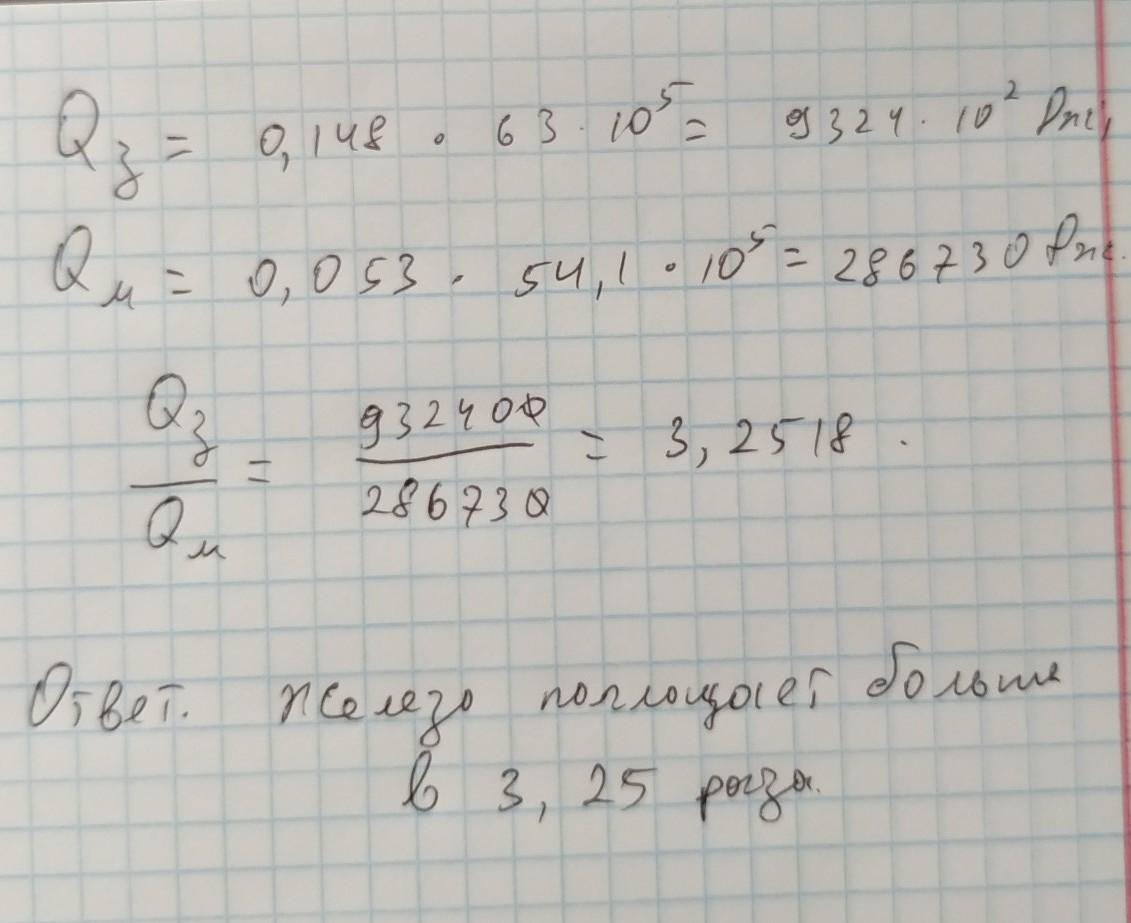 Qз = 0,148 · 63 · 10⁵ = 9324 · 10² Дж,
Qм = 0,053 · 54,1 · 10⁵ = 286730 Дж.
Qз/Qм = 932400/286730 = 3,2518.
Ответ. Железо поглощает больше
в 3,25 раза.